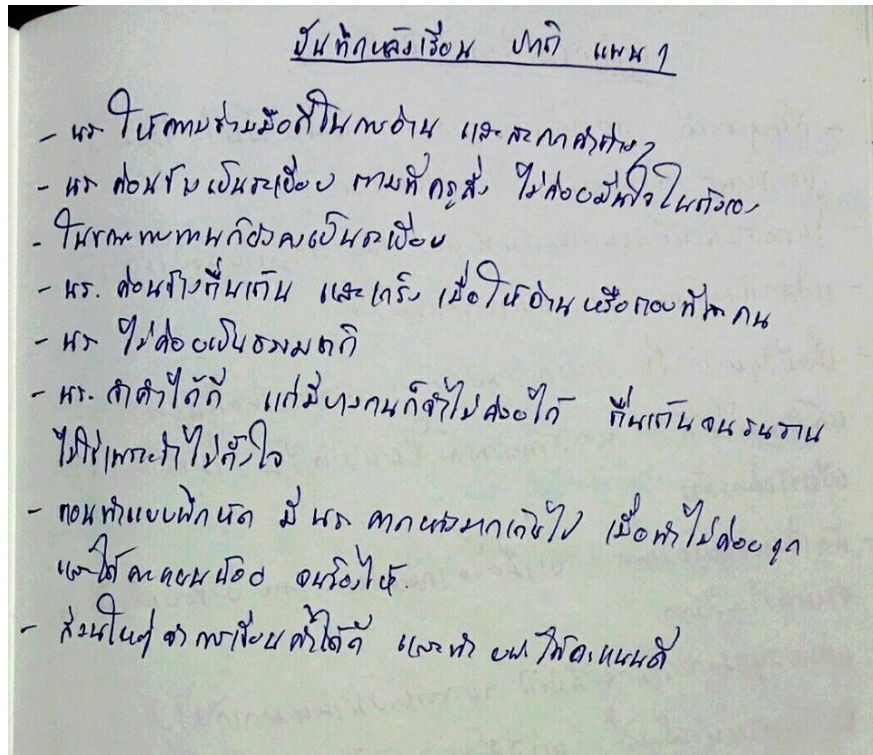 บันทึกหลังเรียน ปกติ แผน 1
- นร ให้ความร่วมมือดีในการอ่าน และสะกดคำต่างๆ
- นร ค่อนข้างเป็นระเบียบ ตามที่ครูสั่ง ไม่ค่อยมั่นใจในตัวเอง
- ในขณะทำงานก็ยังคงเป็นระเบียบ
- นร. ค่อนข้างตื่นเต้น และเกร็ง เมื่อให้อ่านหรือตอบทีละคน
- นร ไม่ค่อยเป็นธรรมชาติ
- นร. จำคำได้ดี แต่มีบางคนก็จำไม่ค่อยได้ ตื่นเต้นจนรนราน
ไม่ใช่เพราะว่าไม่ตั้งใจ
- ตอนทำแบบฝึกหัด มี นร คาดหวังมากเกินไป เมื่อทำไม่ค่อยถูก
และได้คะแนนน้อย จนร้องไห้.
- ส่วนใหญ่จำการเขียนคำได้ดี และทำ ได้คะแนนดี